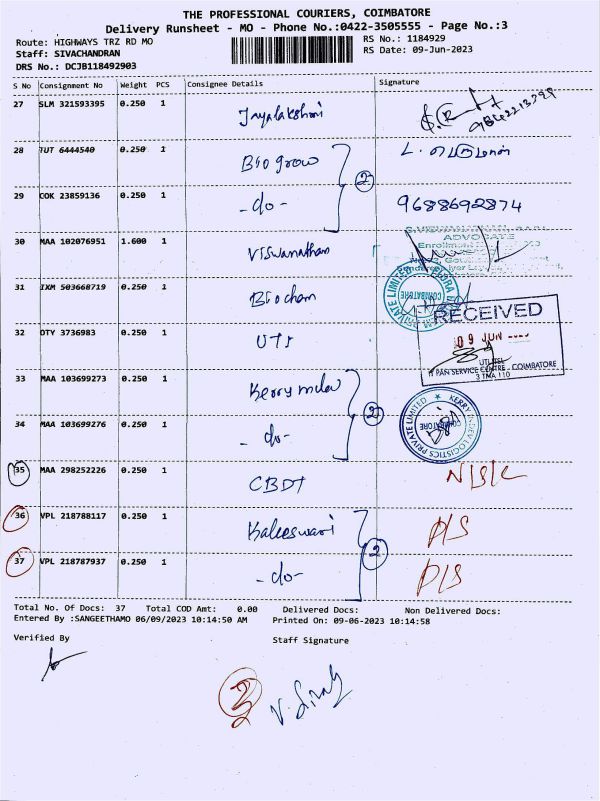 THE PROFESSIONAL COURIERS, COIMBATORE
Delivery Runsheet - MO - Phone No.:0422-3505555 - Page No.:3
Route: HIGHWAYS TRZ RD MO
RS No.: 1184929
Staff: SIVACHANDRAN
RS Date: 09-Jun-2023
DRS No.: DCJB118492903
S No Consignment No Weight PCS Consignee Details Signature
27 SLM 321593395 0.250 1 Jayalakshmi
28 TUT 6444540 0.250 1 Bio grow
2
29 COK 23859136 0.250 1 -do- 9688692874
30 MAA 102076951 1.600 1 Viswanathan
ADVOCATE
31 IXM 503668719 0.250 1 Biocham
COIMBATORE
RECEIVED
32 OTY 3736983 0.250 1 UTI
09 JUN
PAN SERVICE CENTRE - COIMBATORE
33 MAA 103699273 0.250 1 Kerry
2
34 MAA 103699276 0.250 1 -do-
KERRY INDEV LOGISTICS PRIVATE LIMITED
COIMBATORE
35 MAA 298252226 0.250 1 CBDT N/S/K
36 VPL 218788117 0.250 1 Kaleeswari D/S
2
37 VPL 218787937 0.250 1 -do- D/S
Total No. Of Docs: 37 Total COD Amt: 0.00 Delivered Docs: Non Delivered Docs:
Entered By :SANGEETHAMO 06/09/2023 10:14:50 AM Printed On: 09-06-2023 10:14:58
Verified By Staff Signature